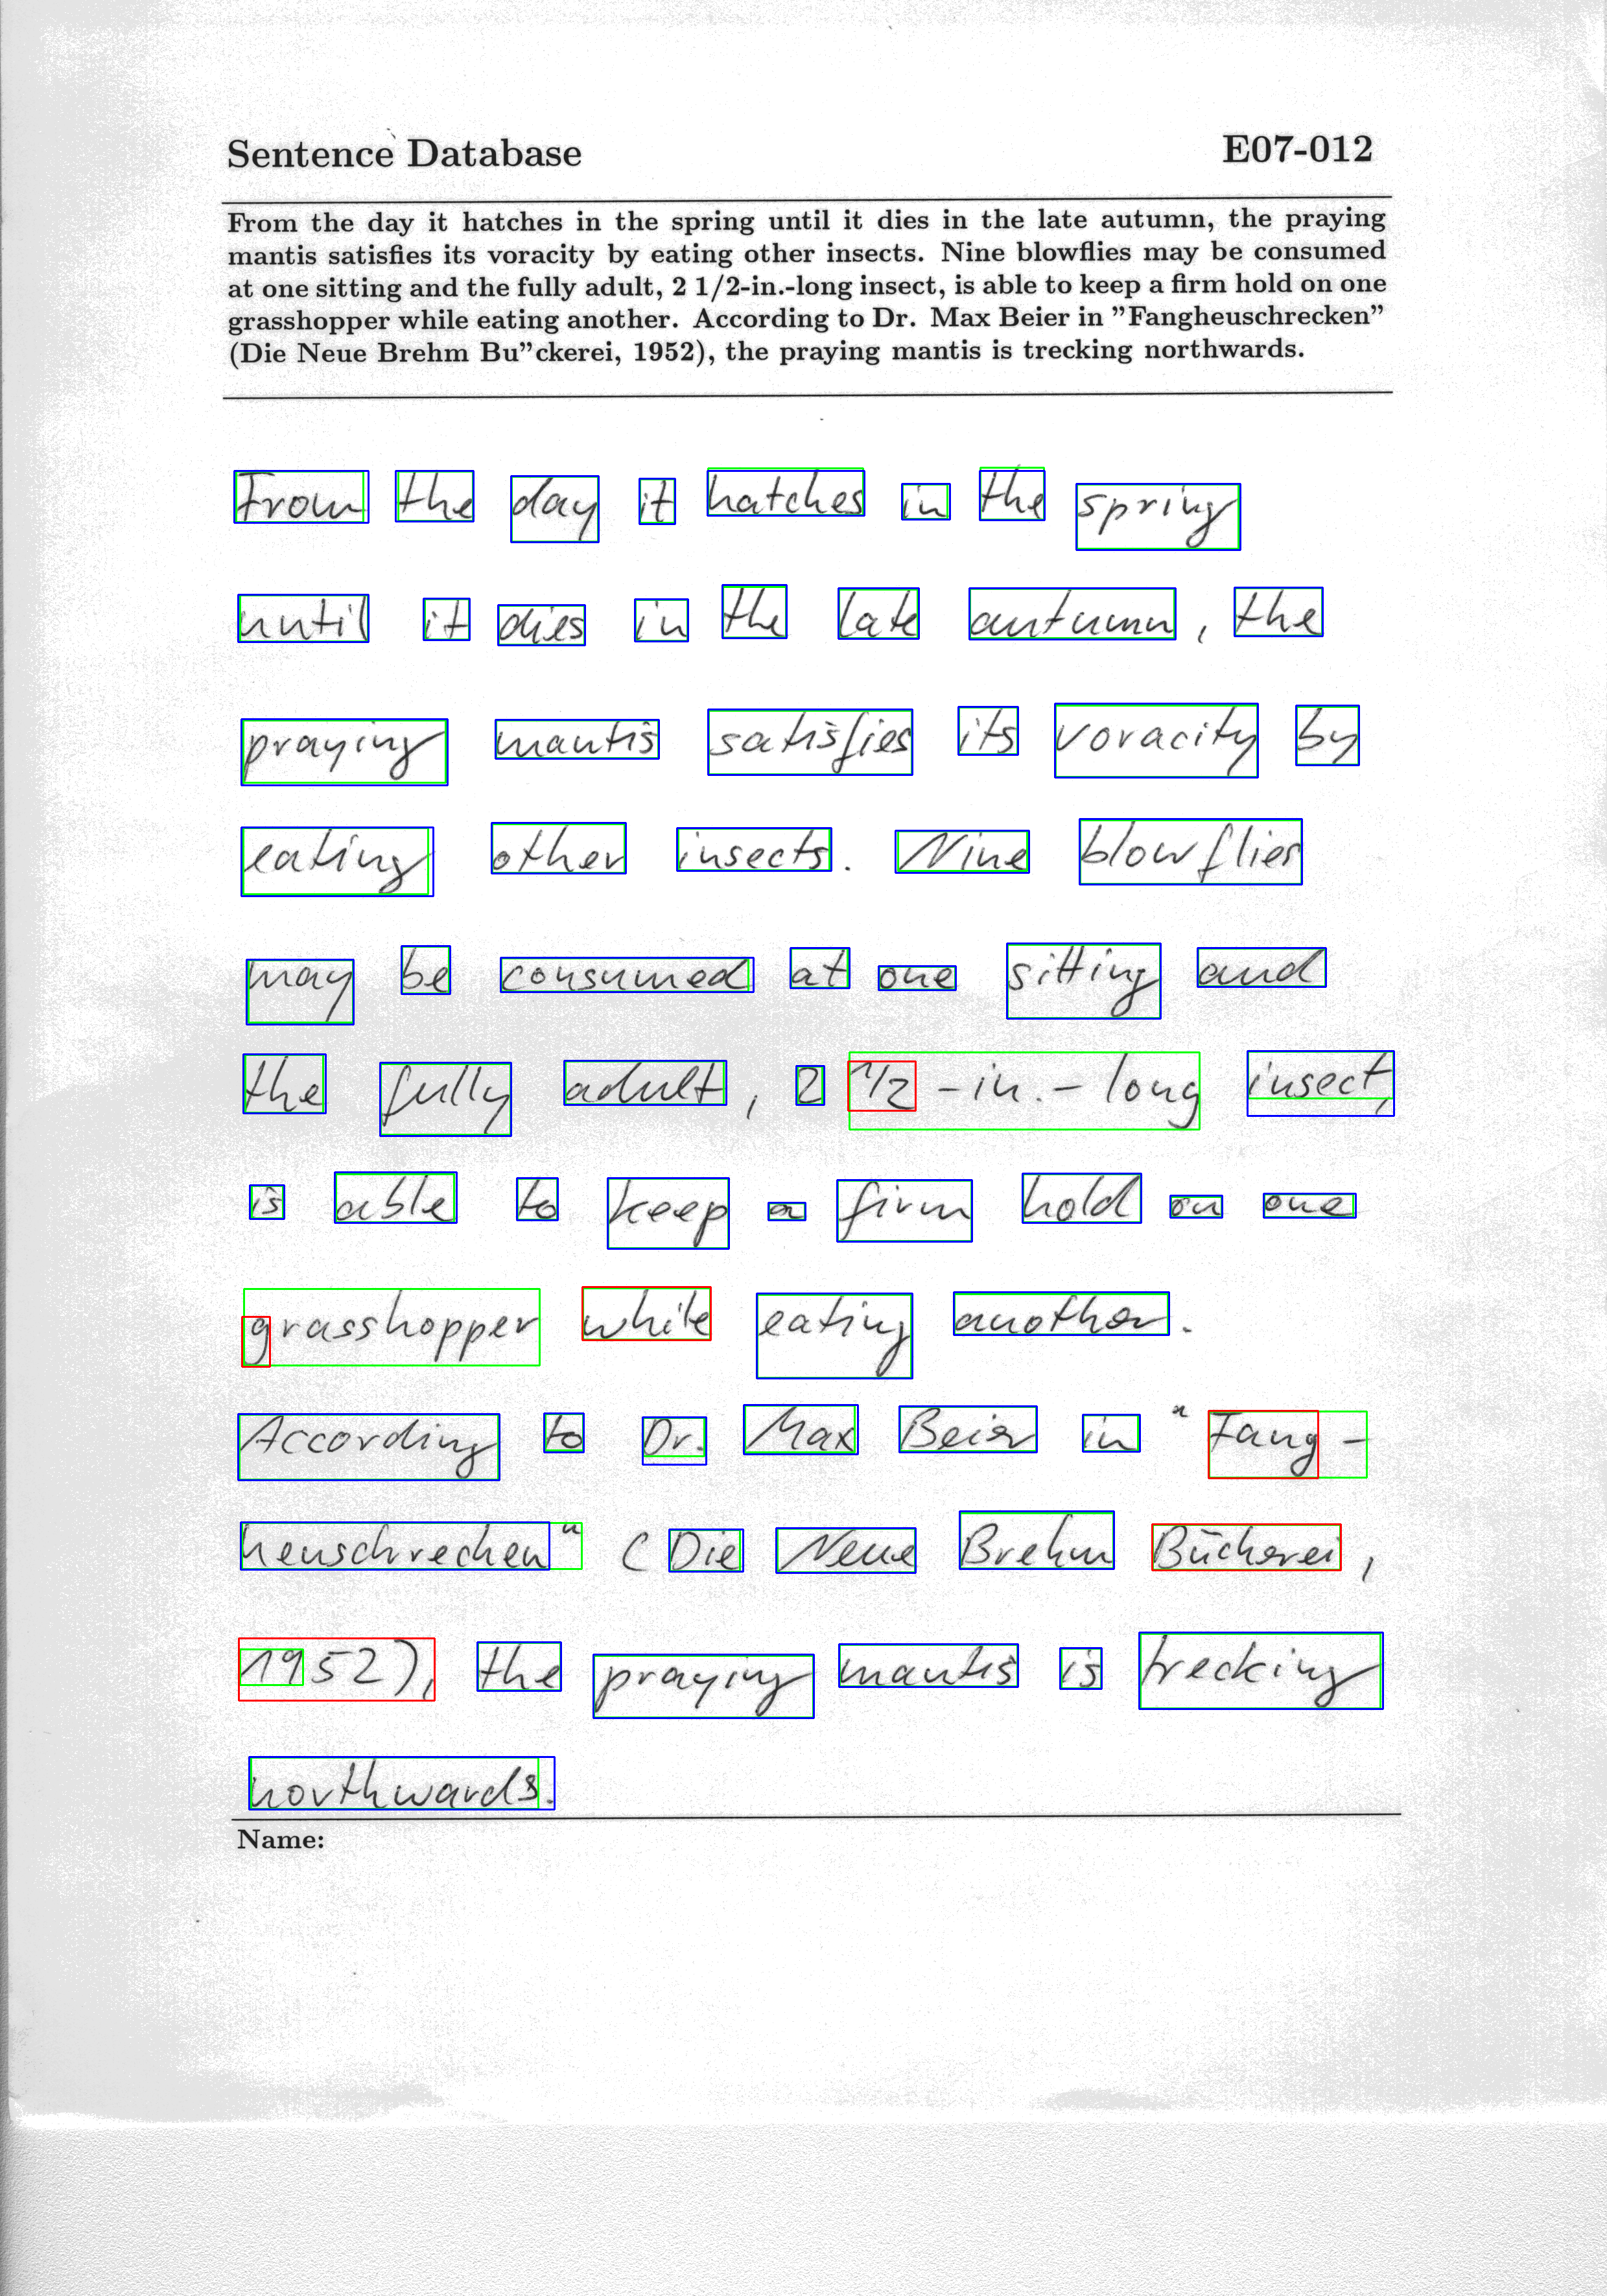 Sentence Database E07-012
From the day it hatches in the spring until it dies in the late autumn, the praying
mantis satisfies its voracity by eating other insects. Nine blowflies may be consumed
at one sitting and the fully adult, 2 1/2-in.-long insect, is able to keep a firm hold on one
grasshopper while eating another. According to Dr. Max Beier in ”Fangheuschrecken”
(Die Neue Brehm Bu”ckerei, 1952), the praying mantis is trecking northwards.
From the day it hatches in the spring
until it dies in the late autumn, the
praying mantis satisfies its voracity by
eating other insects. Nine blowflies
may be consumed at one sitting and
the fully adult, 2 1/2 -in.- long insect,
is able to keep a firm hold on one
grasshopper while eating another.
According to Dr. Max Beier in "Fang-
heuschrecken" (Die Neue Brehm Bücherei,
1952), the praying mantis is trecking
northwards.
Name: